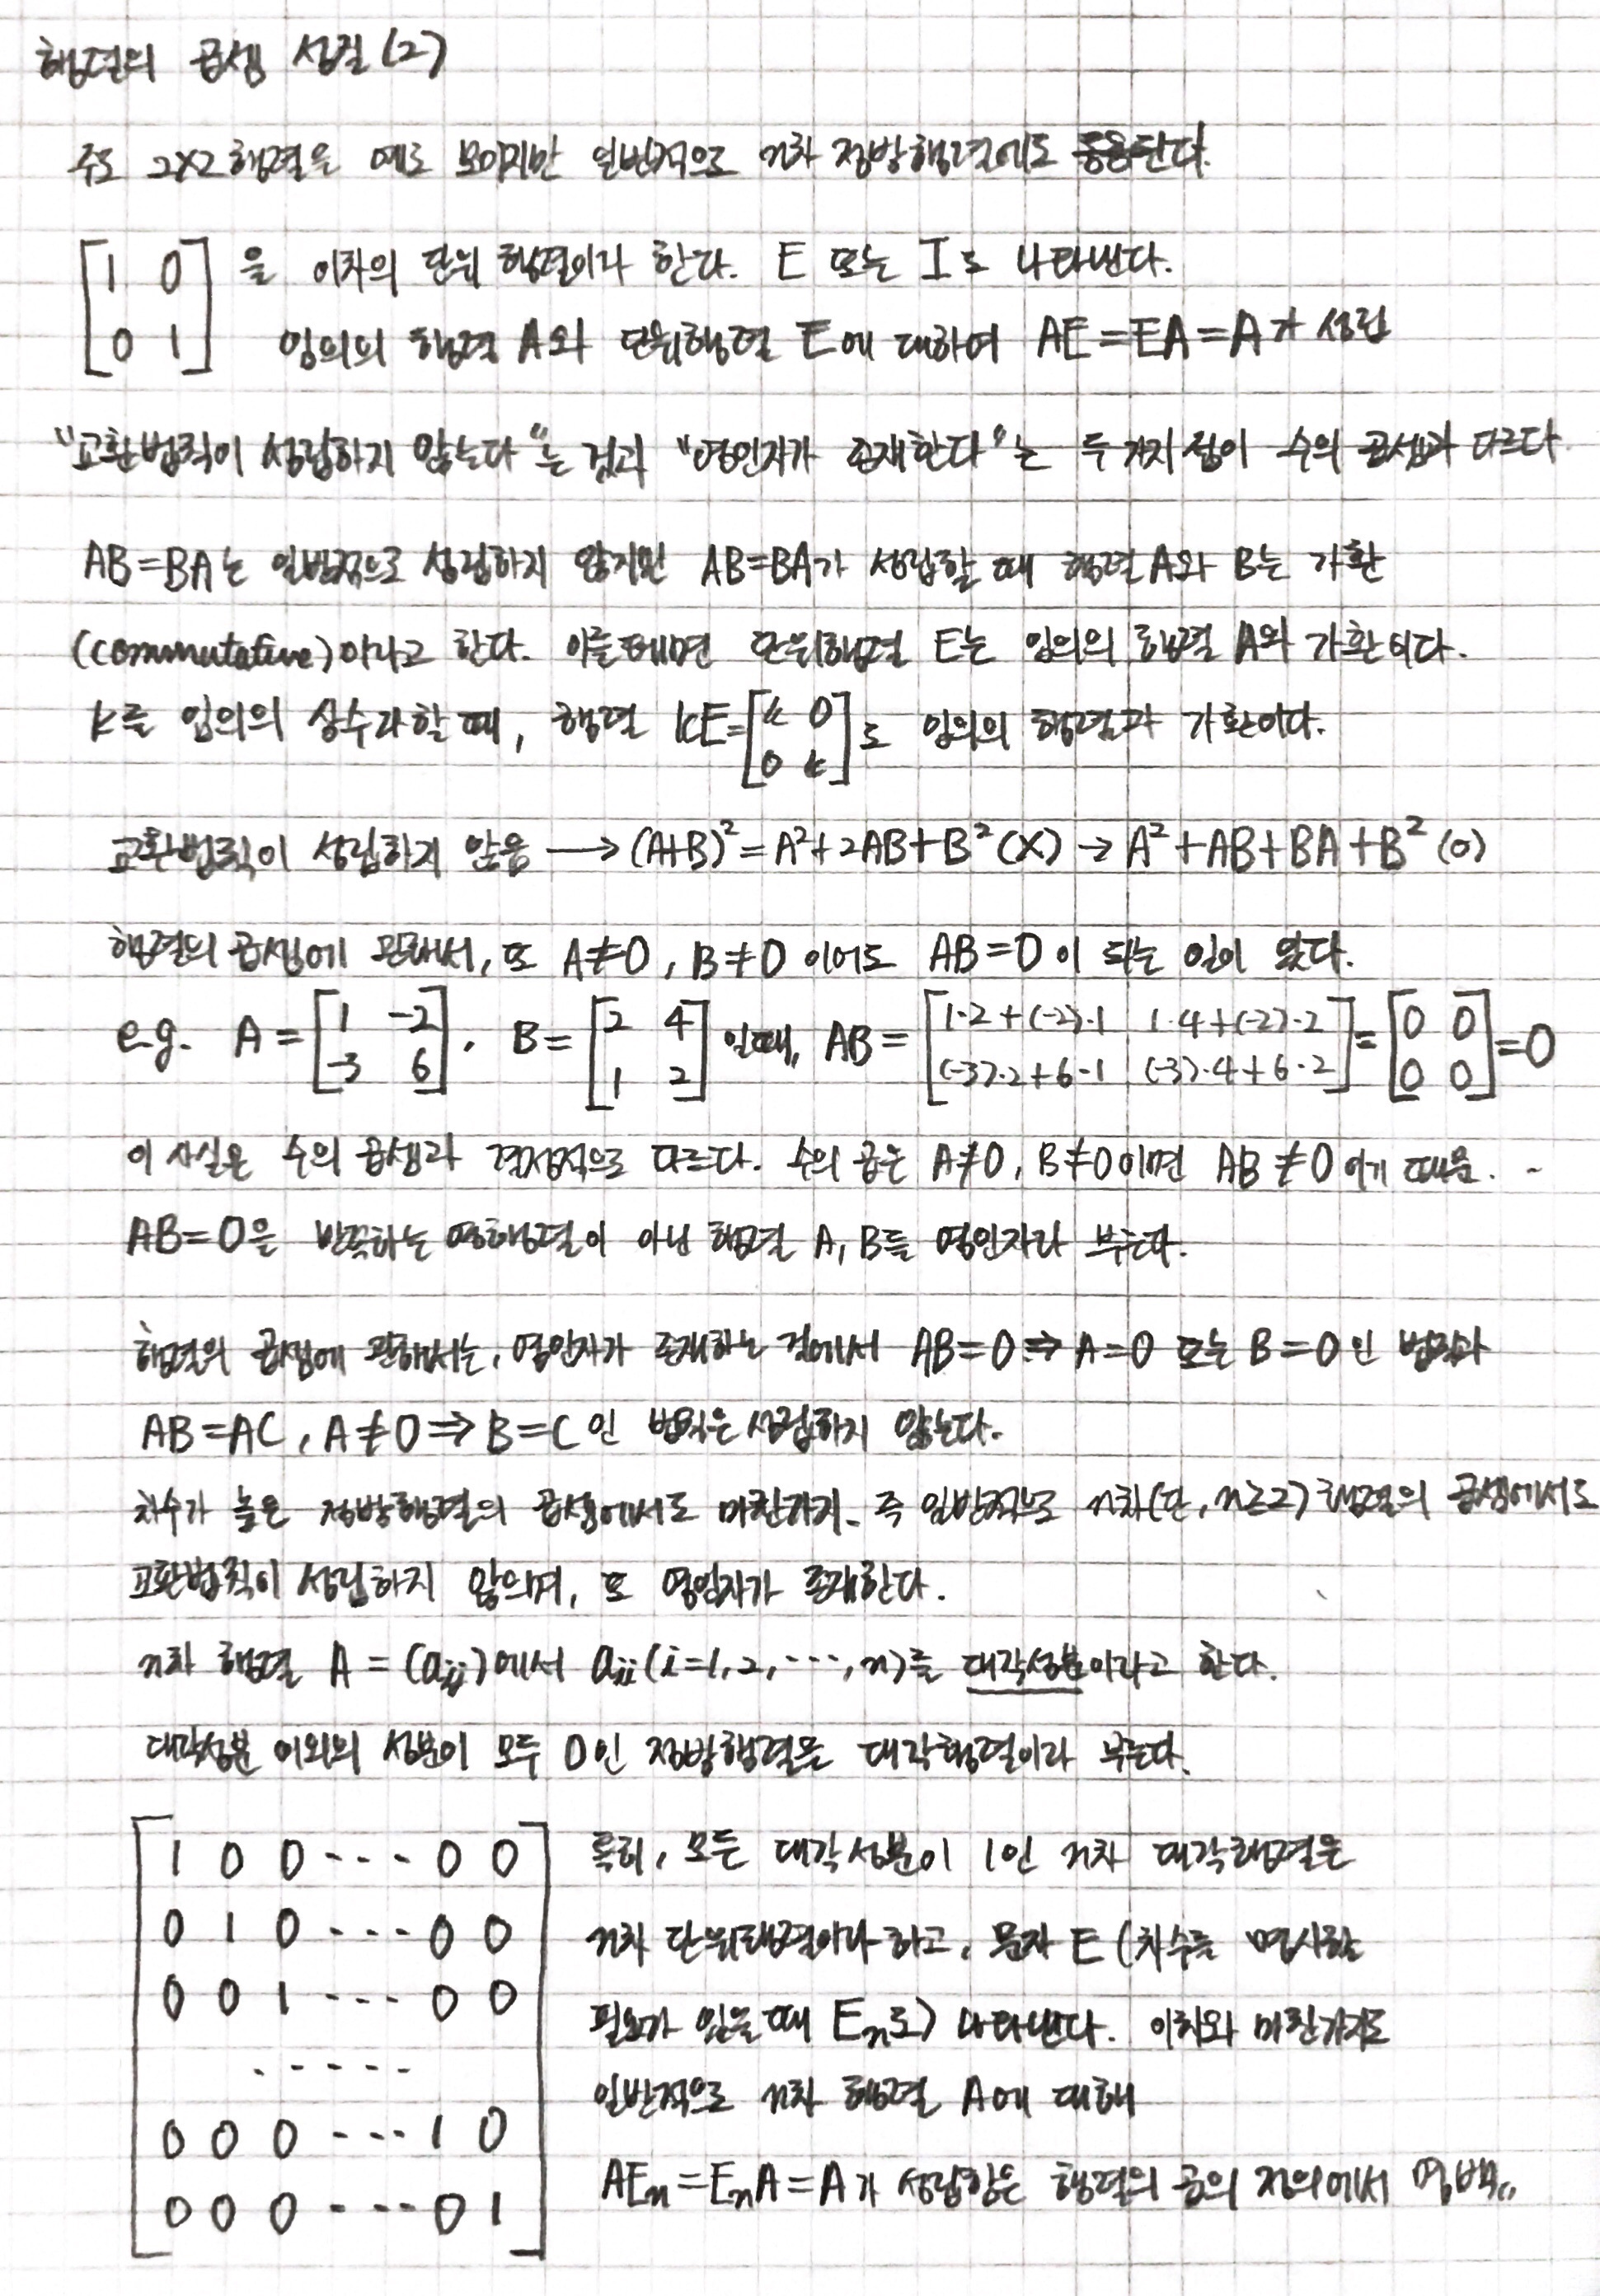 행렬의 곱셈 성질(2)
주로 2×2행렬을 예로 보이지만 일반적으로 n차 정방행렬에도 통용된다.
[1 0
0 1] 을 이차의 단위 행렬이라 한다. E 또는 I로 나타낸다.
임의의 행렬 A와 단위행렬 E에 대하여 AE=EA=A가 성립
"교환법칙이 성립하지 않는다"는 것과 "영인자가 존재한다"는 두가지 점이 수의 곱셈과 다르다.
AB=BA는 일반적으로 성립하지 않지만 AB=BA가 성립할 때 행렬 A와 B는 가환
(commutative)이라고 한다. 이를테면 단위행렬 E는 임의의 행렬 A와 가환이다.
k를 임의의 상수라 할 때, 행렬 kE=[k 0
0 k]도 임의의 행렬과 가환이다.
교환법칙이 성립하지 않음 → (A+B)²=A²+2AB+B²(X) → A²+AB+BA+B²(O)
행렬의 곱셈에 관해서, 또 A≠0, B≠0 이어도 AB=0이 되는 일이 있다.
e.g. A=[1 -2
-3 6], B=[2 4
1 2]일때, AB=[1·2+(-2)·1 1·4+(-2)·2
(-3)·2+6·1 (-3)·4+6·2]=[0 0
0 0]=0
이 사실은 수의 곱셈과 결정적으로 다르다. 수의 곱은 A≠0, B≠0이면 AB≠0이기 때문.
AB=0을 만족하는 영행렬이 아닌 행렬 A, B를 영인자라 부른다.
행렬의 곱셈에 관해서는, 영인자가 존재하는 것에서 AB=0⇒A=0 또는 B=0인 법칙과
AB=AC, A≠0⇒B=C인 법칙은 성립하지 않는다.
차수가 높은 정방행렬의 곱셈에서도 마찬가지. 즉 일반적으로 n차(단, n≥2)행렬의 곱셈에서도
교환법칙이 성립하지 않으며, 또 영인자가 존재한다.
n차 행렬 A=(aij)에서 aii(i=1,2,···,n)를 대각성분이라고 한다.
대각성분 이외의 성분이 모두 0인 정방행렬을 대각행렬이라 부른다.
[1 0 0 --- 0 0
0 1 0 --- 0 0
0 0 1 --- 0 0
·····
0 0 0 --- 1 0
0 0 0 --- 0 1]
특히, 모든 대각성분이 1인 n차 대각행렬은
n차 단위행렬이라 하고, 문자 E (차수를 명시할
필요가 있을 때 En로) 나타낸다. 이차와 마찬가지로
일반적으로 n차 행렬 A에 대해
AEn=EnA=A가 성립함은 행렬의 곱의 정의에서 명백.